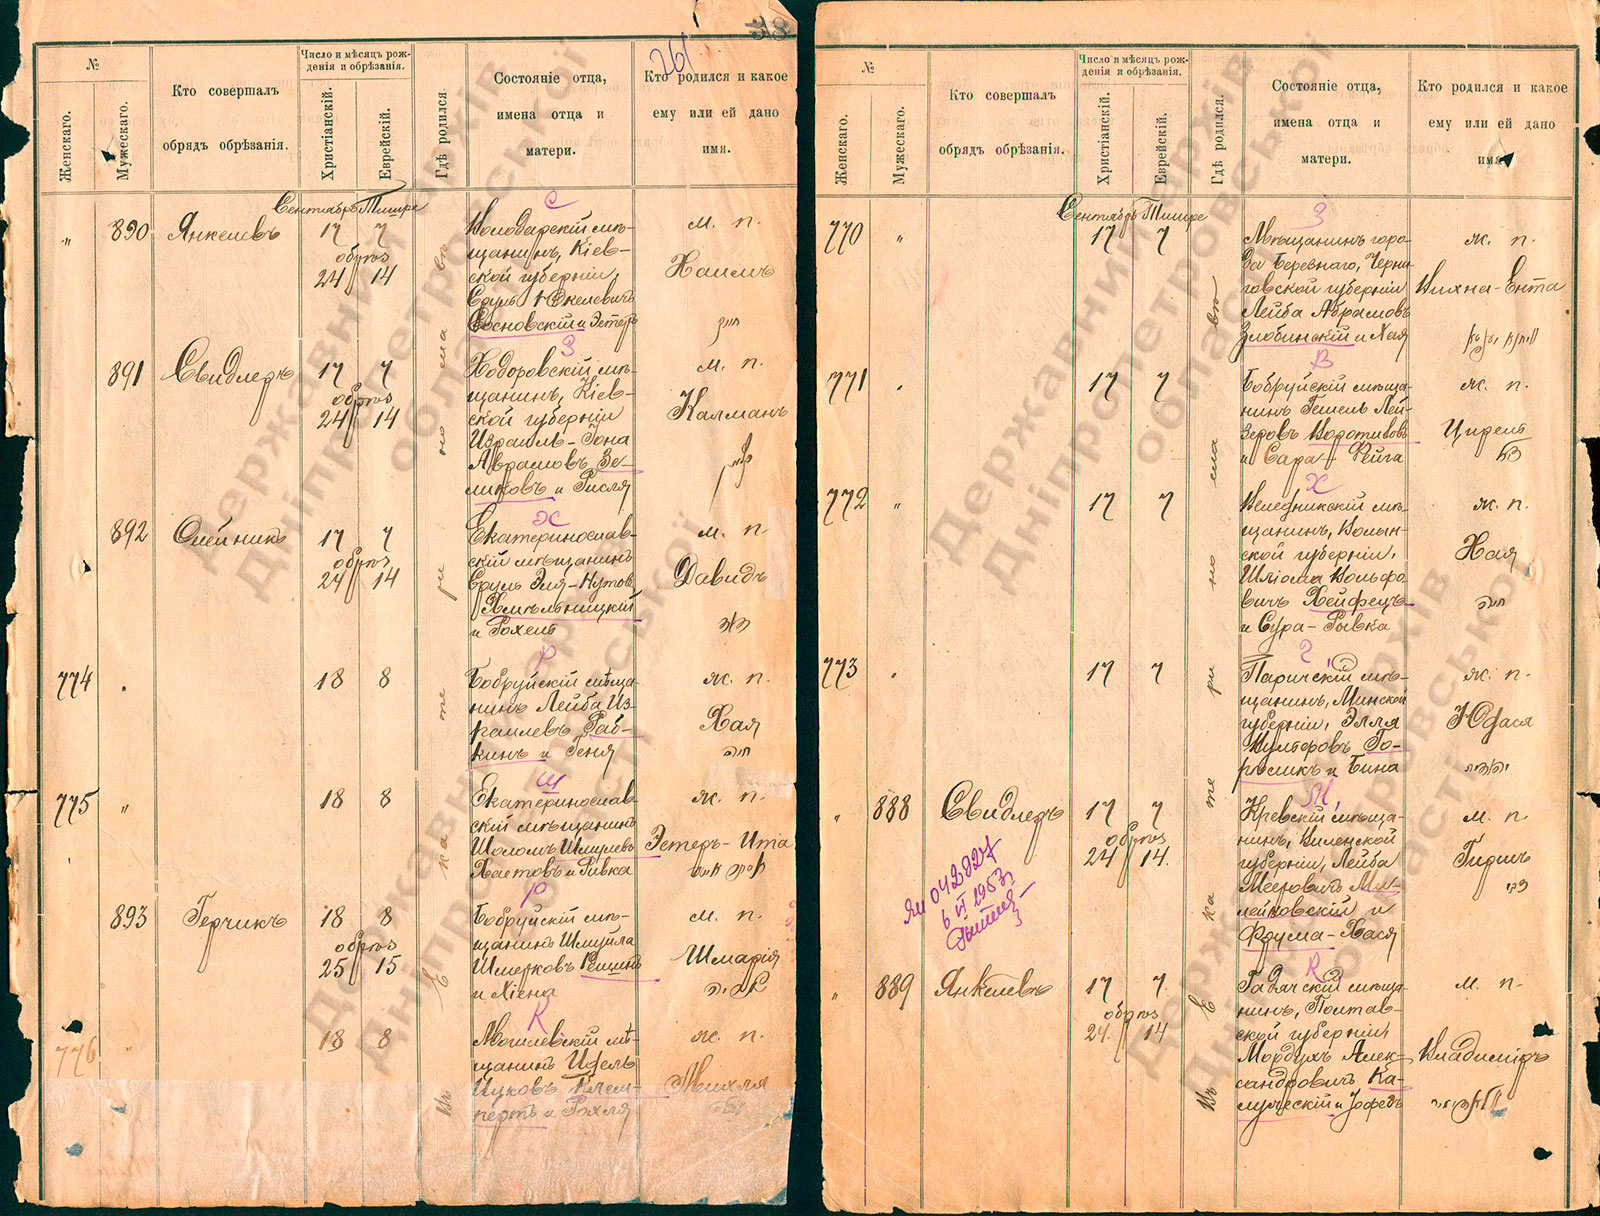 261
№
Женскаго.
Мужескаго.
Кто совершалъ
обрядъ обрѣзанія.
Число и мѣсяцъ рож-
денія и обрѣзанія.
Христіанскій.
Еврейскій.
Гдѣ родился.
Состояніе отца,
имена отца и
матери.
Кто родился и какое
ему или ей дано
имя.
Сентябрь Тишре
"
890
Янкелевъ
17 7
обрѣз
24 14
С
Володарскій мѣ-
щанинъ, Кіев-
ской губерніи,
Сруль Іокелевичъ
Сосновскій и Эстеръ
м. п.
Хаимъ
חיים
891
Свидлеръ
17 7
обрѣз
24 14
З
Ходоровскій мѣ-
щанинъ, Кіев-
ской губерніи
Израиль-Іона
Аврамовъ Зе-
ликовъ и Рисля
м. п.
Калманъ
892
Олейникъ
17 7
обрѣз
24 14
Х
Екатеринослав-
скій мѣщанинъ
Сруль Эля-Нутов.
Хмѣльницкій
и Рохель
м. п.
Давидъ
דוד
774
"
18 8
Р
Бобруйскій мѣща-
нинъ Лейба Из-
раилевъ Раб-
кинъ и Геня
ж. п.
Хая
חיה
775
"
18 8
Ш
Екатеринослав
скій мѣщанинъ
Шоломъ Шмуилевъ
и Ривка
ж. п.
Эстеръ-Ита
893
Герчикъ
18 8
обрѣз
25 15
Р
Бобруйскій мѣ-
щанинъ Шмуйла
Шмерковъ
и Хіена
м. п.
Шмарія
776
"
18 8
К
Могилевскій мѣ-
щанинъ Идель
Ицковъ Клем-
пертъ и Рохля
ж. п.
Михля
Въ Екатеринославѣ
№
Женскаго.
Мужескаго.
Кто совершалъ
обрядъ обрѣзанія.
Число и мѣсяцъ рож-
денія и обрѣзанія.
Христіанскій.
Еврейскій.
Гдѣ родился.
Состояніе отца,
имена отца и
матери.
Кто родился и какое
ему или ей дано
имя.
Сентябрь Тишре
770
"
17 7
З
Мѣщанинъ горо-
да Березнаго, Черни
говской губерніи
Лейба Абрамовъ
Злобинскій и Хая
ж. п.
Блюхна-Ента
771
"
17 7
Бобруйскій мѣща-
нинъ Гешель Лей-
зеровъ Воротиковъ
и Сара-Фейга
ж. п.
Цирель
772
"
17 7
Х
Веледникскій мѣ-
щанинъ, Волын-
ской губерніи,
Шліома Вольфо-
вичъ Хейфецъ
и Сура-Рывка
ж. п.
Хая
חיה
773
"
17 7
Г
Паричскій мѣ-
щанинъ, Минской
губерніи, Элля
Го-
и Бина
ж. п.
Юдася
"
888
Свидлеръ
17 7
обрѣз
24 14
М
Кревскій мѣща-
нинъ, Виленской
губерніи, Лейба
Мееровичъ Ми-
лейковскій и
Фрума-Хася
м. п.
Гиршъ
ЯИ 042827
6 VI 1953
"
889
Янкелевъ
17 7
обрѣз
24 14
К
Гадячскій мѣща-
нинъ, Полтав-
ской губерніи,
Мордухъ Алек-
сандровичъ Ка-
лужескій и Іофедъ
м. п.
Владиміръ
Въ Екатеринославѣ
Державний архів
Дніпропетровської
області